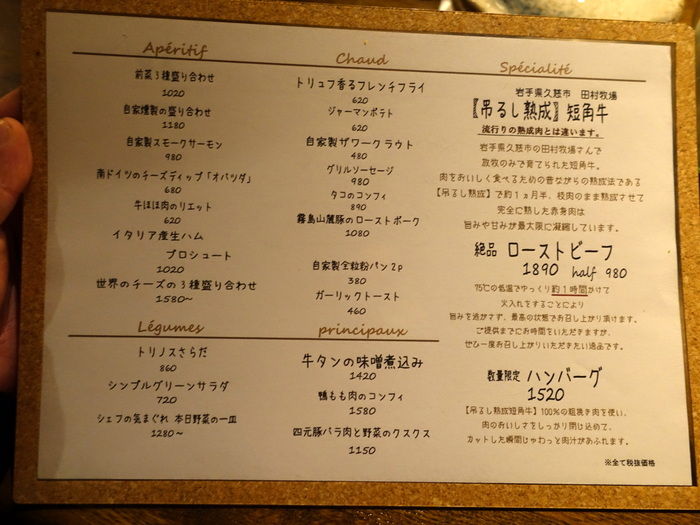 Apéritif
前菜3種盛り合わせ
1020
自家燻製の盛り合わせ
1180
自家製スモークサーモン
980
南ドイツのチーズディップ「オバツダ」
680
牛ほほ肉のリエット
620
イタリア産生ハム
プロシュート
1020
世界のチーズの3種盛り合わせ
1580～
Légumes
トリノスさらだ
860
シンプルグリーンサラダ
720
シェフの気まぐれ 本日野菜の一皿
1280～
Chaud
トリュフ香るフレンチフライ
620
ジャーマンポテト
620
自家製ザワークラウト
480
グリルソーセージ
980
タコのコンフィ
890
霧島山麓豚のローストポーク
1080
自家製全粒粉パン2p
380
ガーリックトースト
460
principaux
牛タンの味噌煮込み
1420
鴨もも肉のコンフィ
1580
四元豚バラ肉と野菜のクスクス
1150
Spécialité
岩手県久慈市 田村牧場
【吊るし熟成】短角牛
流行りの熟成肉とは違います。
岩手県久慈市の田村牧場さんで
放牧のみで育てられた短角牛。
肉をおいしく食べるための昔ながらの熟成法である
【吊るし熟成】で約1ヵ月半、枝肉のまま熟成させて
完全に熟した赤身肉は
旨みや甘みが最大限に凝縮しています。
絶品 ローストビーフ
1890 half 980
75℃の低温でゆっくり約1時間かけて
火入れをすることにより
旨みを逃がさず、最高の状態でお召し上がり頂けます。
ご提供までにお時間をいただきますが、
ぜひ一度お召し上がりいただきたい逸品です。
数量限定 ハンバーグ
1520
【吊るし熟成短角牛】100%の粗挽き肉を使い、
肉のおいしさをしっかり閉じ込めて、
カットした瞬間じゅわっと肉汁があふれます。
※全て税抜価格